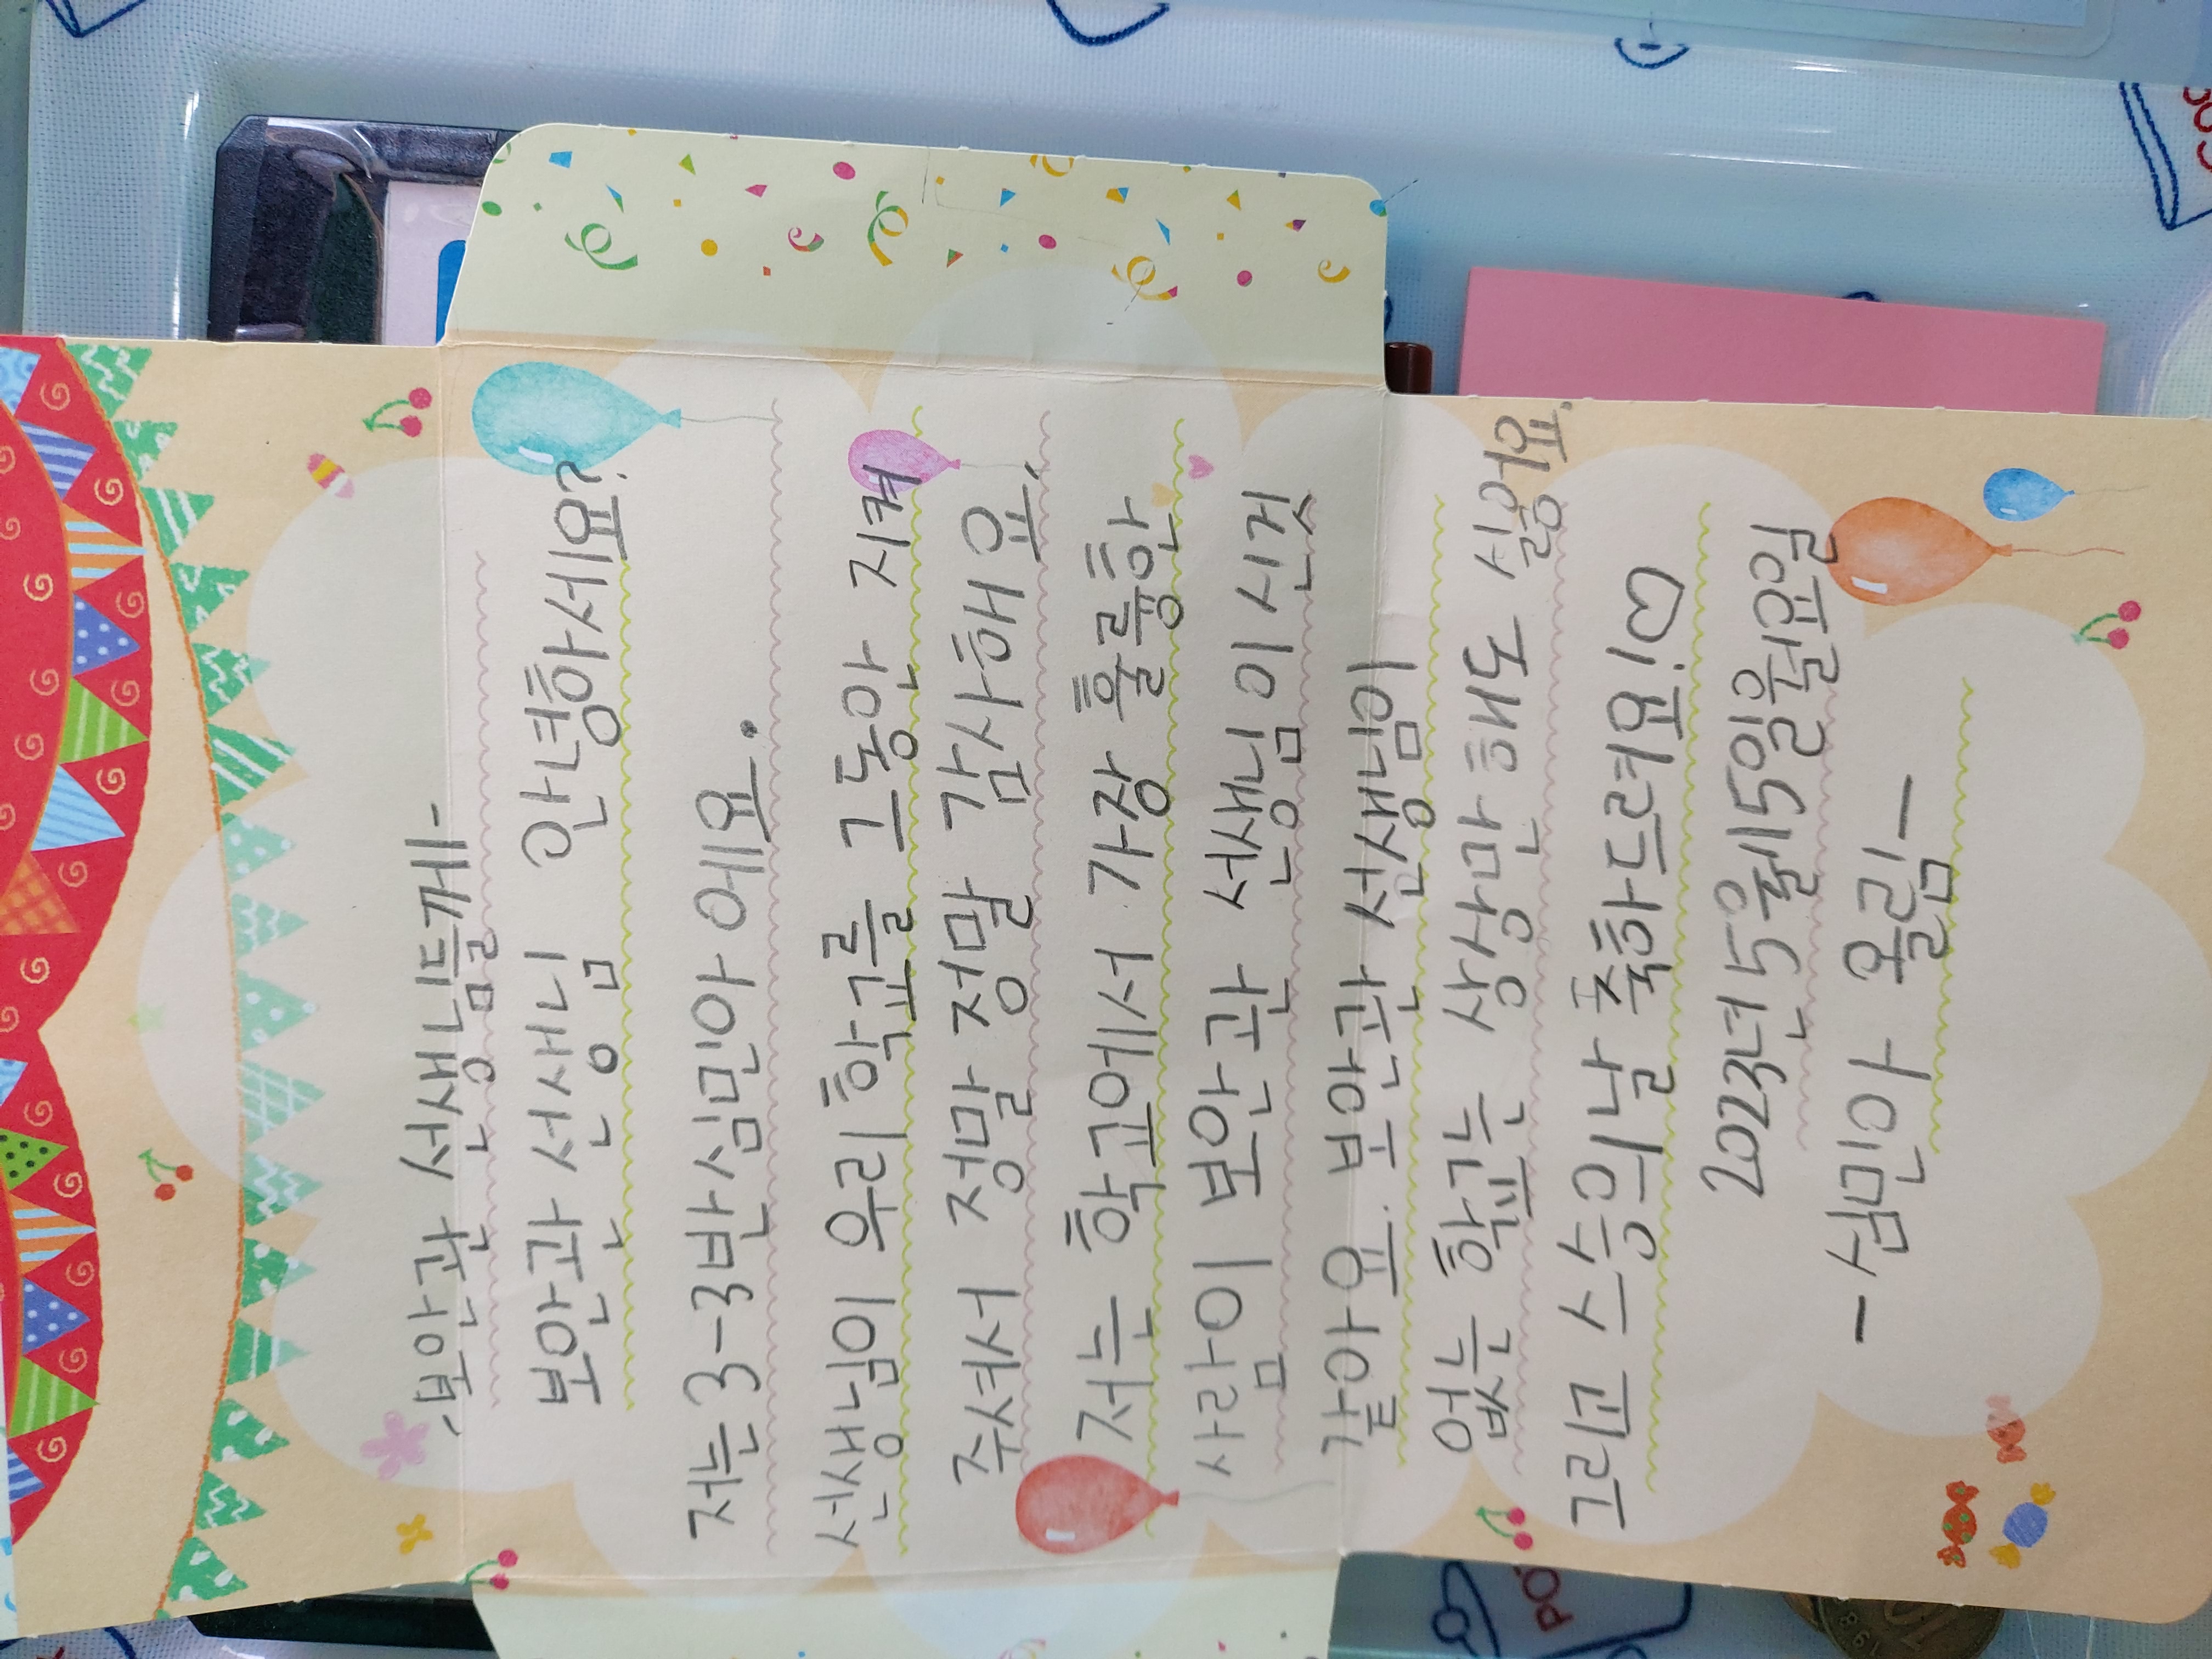 -보안관 선생님들께-
보안관 선생님 안녕하세요?
저는 3-3반 심민아 에요.
선생님이 우리 학교를 그동안 지켜
주셔서 정말 정말 감사해요.
저는 학교에서 가장 훌륭한
사람이 보안관 선생님이신것
같아요. 보안관 선생님이
없는 학교는 상상만 해도 싫어요.
그리고 스승의날 축하드려요!♡
2023년 5월 15일 월요일
- 심민아 올림 -